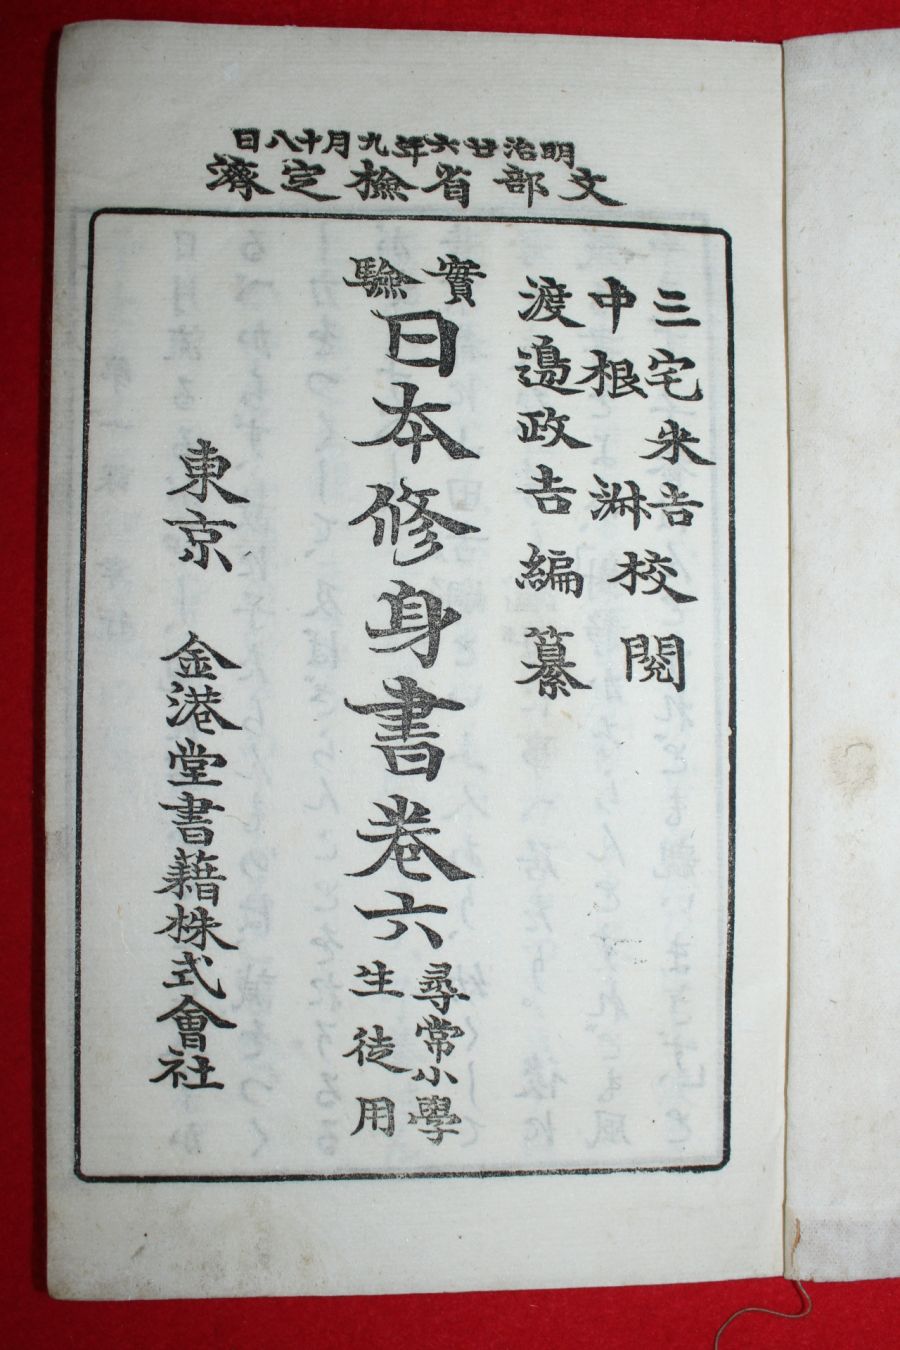 明治廿六年九月十八日
文部省檢定濟
三宅米吉校
中根淑閱
渡邊政吉編纂
實驗
日本修身書卷六
尋常小學
生徒用
東京 金港堂書籍株式會社